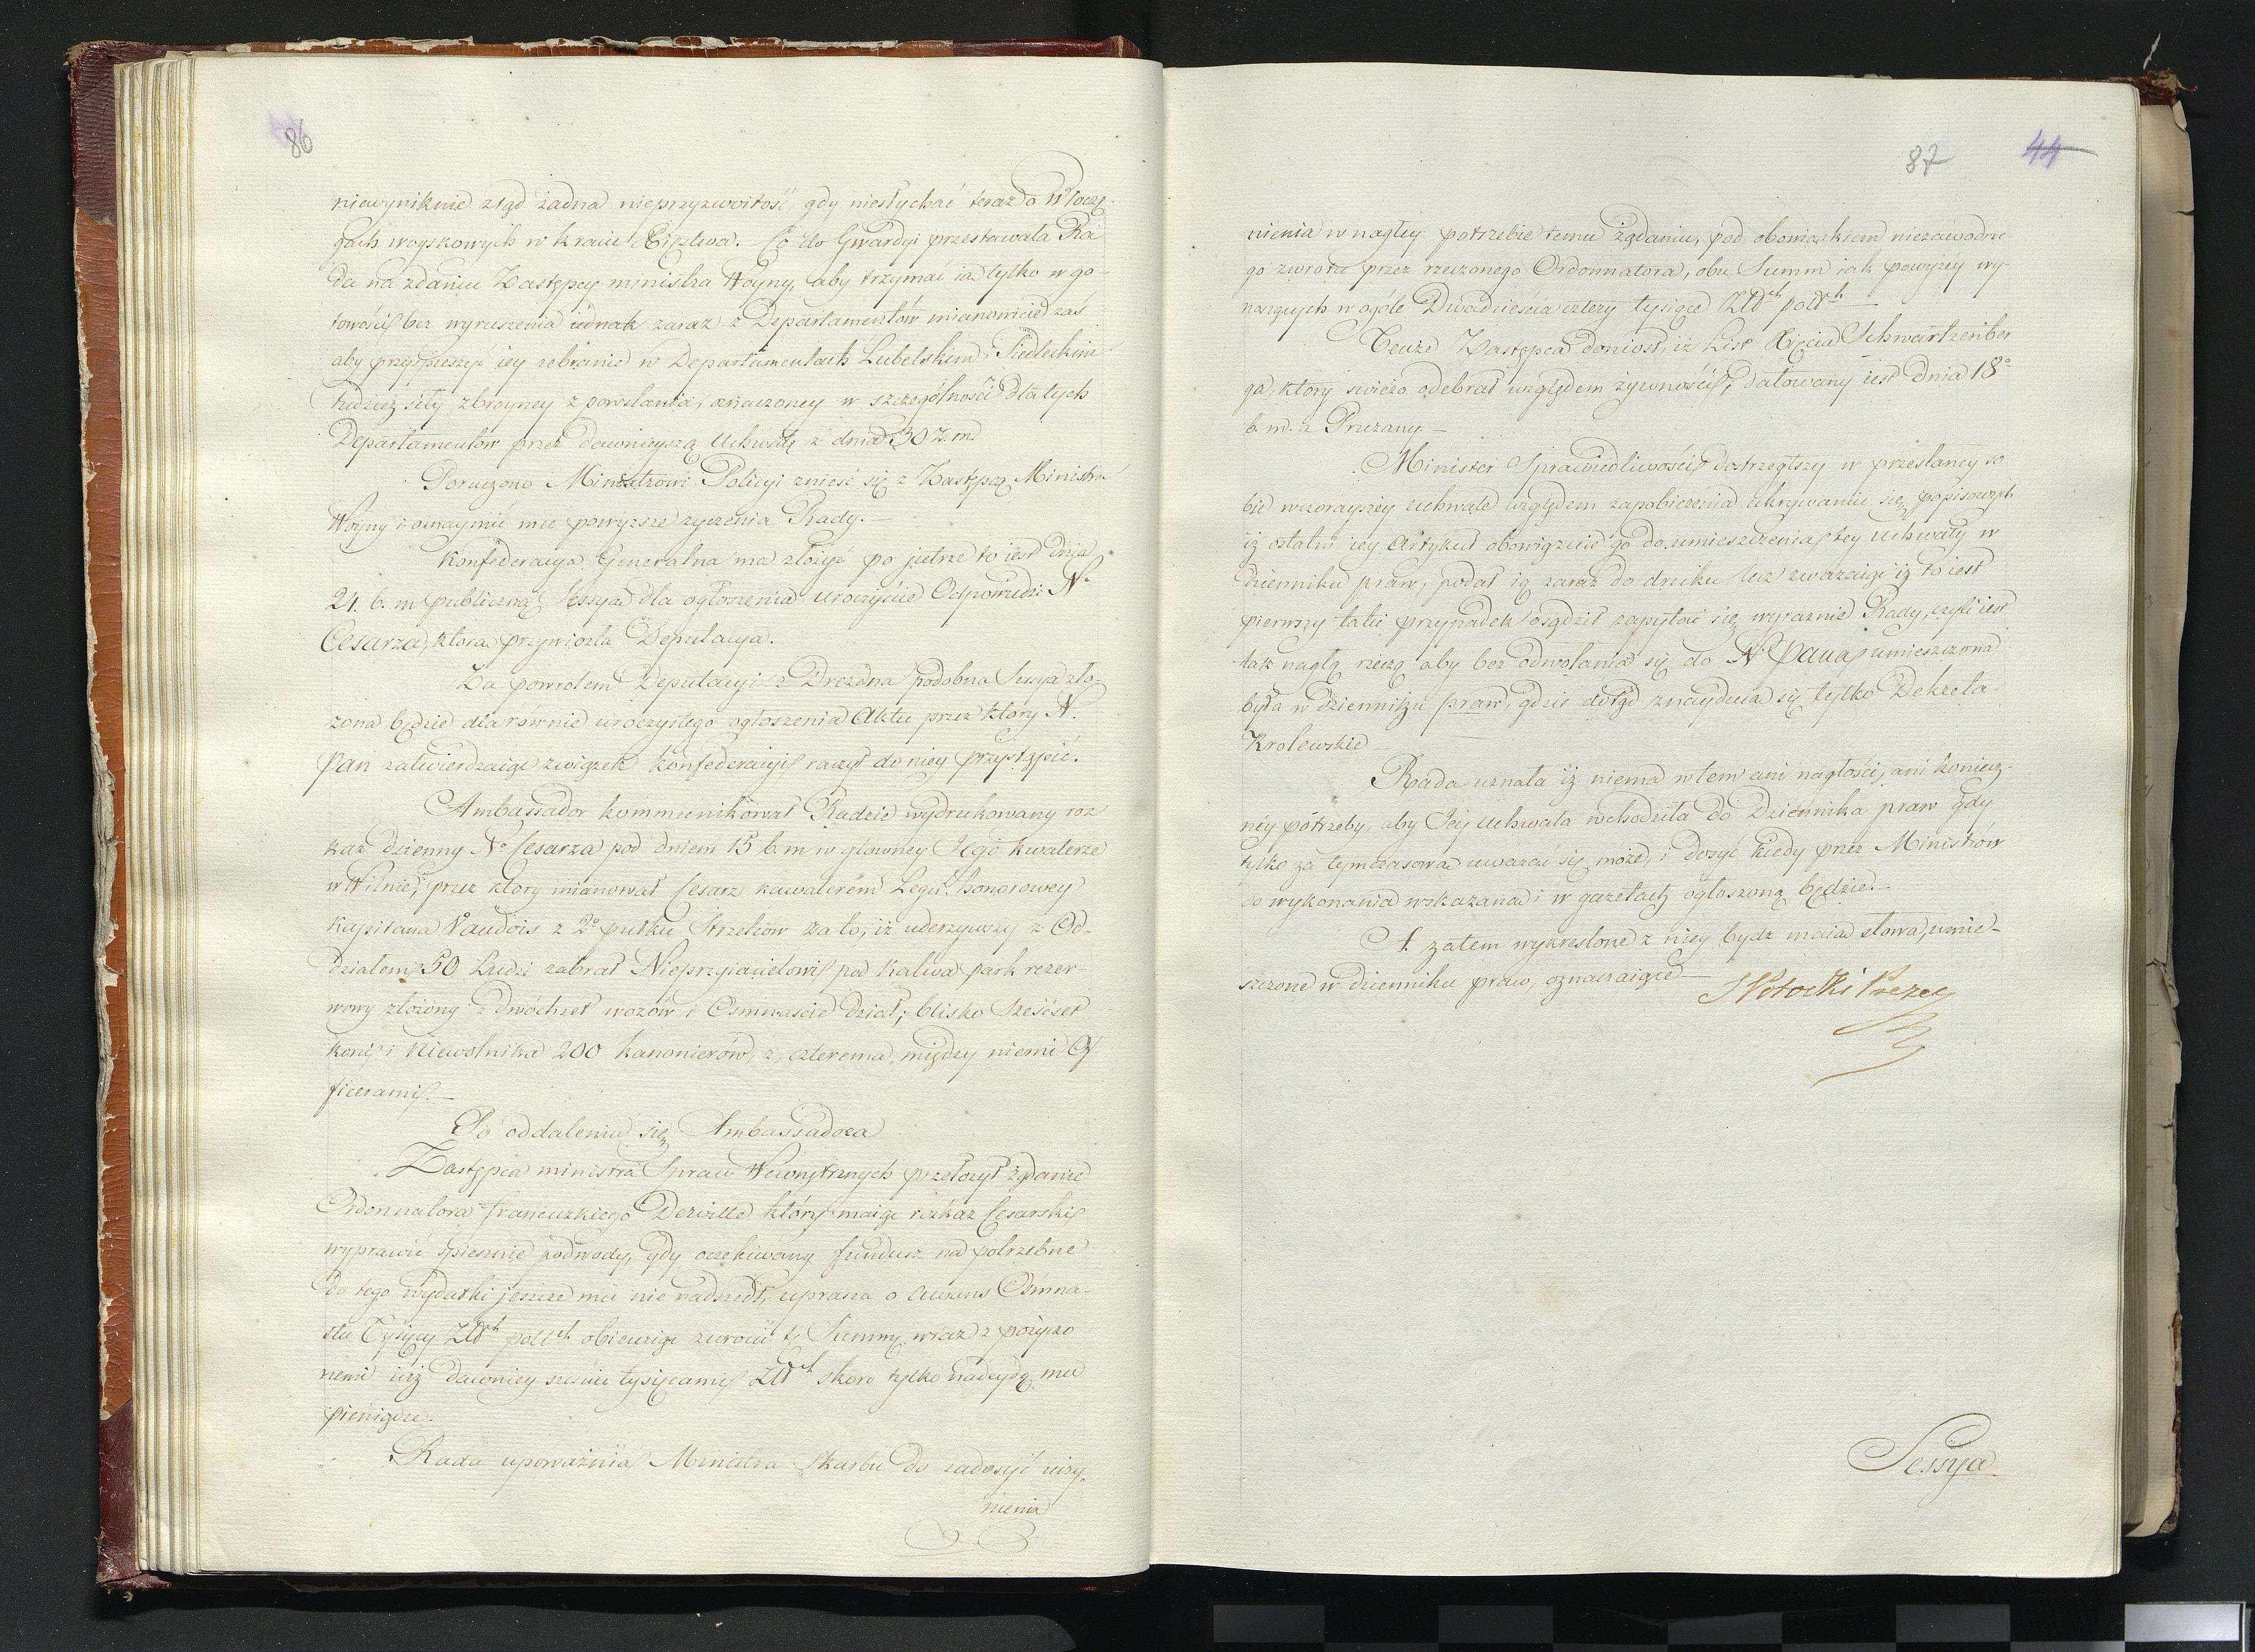 86
niewyniknie ztąd żadna nieprzyzwoitość gdy niesłychać teraz o Włoczę-
gach woyskowych w kraiu Xięztwa. Co do Gwardyi przestawała Ra-
da na zdaniu Zastępcy ministra Woyny, aby trzymać ią tylko w go-
towości bez wyruszenia iednak zaraz z Departamentów mianowicie zaś
aby przyśpieszyć iey zebranie w Departamentach Lubelskim i Siedleckim
tudzież siły zbroyney z powstania, oznaczoney w szczególności dla tych
Departamentów przez dawnieyszą Uchwałę z dnia 30 z. m.
Poruczono Ministrowi Policyi znieść się z Zastępcą Ministra
Woyny i oznaymić mu powyższe życzenia Rady.—
Konfederacya Generalna ma złożyć po jutrze to iest dnia
24. b. m publiczną Sessyą dla ogłoszenia uroczyście Odpowiedzi No
Cesarza, którą przywiozła Deputacya.
Za powrotem Deputacyi z Drezna podobna Sessya zło-
żona będzie dla równie uroczystego ogłoszenia Aktu przez który N.
Pan zatwierdzaiąc związek Konfederacyi raczył do niey przystąpić.
Ambassador kommunikował Radzie wydrukowany roz
kaz dzienny No Cesarza pod dniem 15 b. m w główney Jego kwaterze
w Wilnie, przez który mianował Cesarz kawalerem Legii honorowey
Kapitana Vaudois z 2o pułku Strzelców za to, iż uderzywszy z Od-
działem 50 Ludzi zabrał Nieprzyiacielowi pod Kalwą park rezer-
wowy złożony z dwóchset wozów i Osmnaście dział; blisko Sześćset
koni i Niewolnika 200 kanonierów, z czterema, między niemi Of-
ficerami.—
Po oddaleniu się Ambassadora
Zastępca ministra Spraw Wewnętrznych przełożył żądanie
Ordonnatora francuzkiego Deziville który maiąc rozkaz Cesarski
wyprawić spiesznie podwody, gdy oczekiwany fundusz na potrzebne
do tego wydatki jeszcze mu nie nadszedł, uprasza o awans Osmna-
stu Tysięcy Złch pollch obiecuiąc zwrócić tę Summę wraz z pożyczo
nemi iuż dawniey sześciu tysięcami Złch skoro tylko nadeydą mu
pieniądze.
Rada upoważnia Ministra Skarbu do zadosyć uczy-
nienia
87 44
nienia w nagłey potrzebie temu żądaniu, pod obowiązkiem niezawodne
go zwrotu przez rzeczonego Ordonnatora, obu Summ iak powyżey wy-
noszących w ogóle Dwadzieścia cztery tysiące Złch pollch —
Tenże Zastępca doniósł, iż List Xięcia Schwartzenber
ga, który świeżo odebrał względem żywności, datowany iest dnia 18o
b. m. z Pruzany.—
Minister Sprawiedliwości dostrzegłszy w przesłaney so
bie wczorayszey uchwale względem zapobieżenia ukrywaniu się popisowych
iż ostatni iey Artykuł obowiązuie go do umieszczenia tey Uchwały w
Dzienniku praw, podał ią zaraz do druku lecz zważaiąc iż to iest
pierwszy taki przypadek osądził zapytać się wyraźnie Rady, czyli iest
tak nagłą rzeczą aby bez odwołania się do No Pana umieszczona
była w Dzienniku praw, gdzie dotąd znayduią się tylko Dekreta
Krolewskie —
Rada uznała iż niema w tem ani nagłości, ani koniecz-
ney potrzeby, aby Jey Uchwała wchodziła do Dziennika praw gdy
tylko za tymczasową uważać się może, i dosyć kiedy przez Ministrów
do wykonania wskazana i w gazetach ogłoszoną będzie.—
A zatem wykreślone z niey bydź maią słowa, umie-
szczone w dzienniku praw, oznaczaiące —
S Potocki Prezes
Sessya